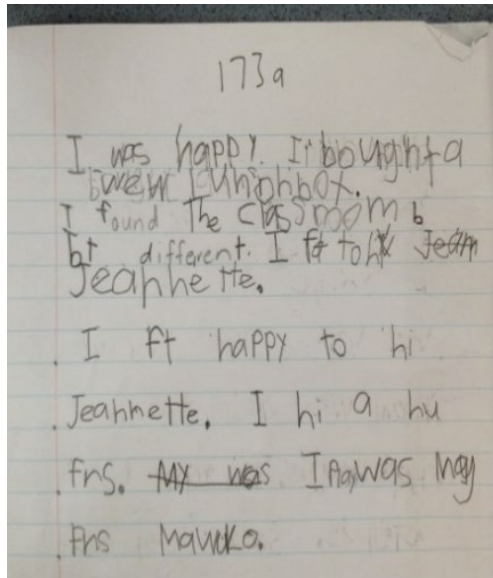 173a
I was happy. I bought a
new lunchbox.
I found The classroom b
bt different. I ft to hi Jean
Jeannette.
I ft happy to hi
Jeannette. I hi a hu
frns. My was I was may
frns